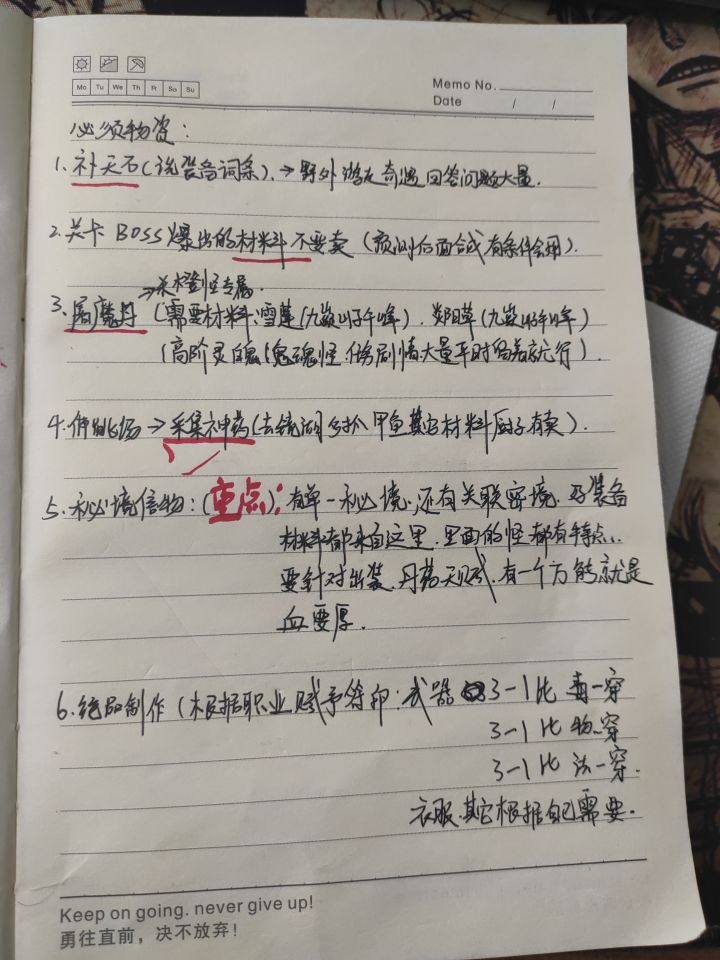 Mo Tu We Th Fr Sa Su
Memo No.
Date / /
必须物资:
1. 补天石(洗装备词条). → 野外游走奇遇回答问题大量.
2. 关卡 BOSS 爆出的材料不要卖(预测后面合成有条件会用).
专属.
3. 屠魔丹(需要材料:雪莲(九嶷山子午峰).
(高阶灵魄(鬼魂怪.
4. → 采集神药(去镜湖 甲鱼其它材料厨子有卖).
5. 秘境信物:(重点): 有单一秘境.还有关联密境.好装备
材料都来自这里.里面的怪都有特点..
要针对出装.丹药天赋.有一个万能就是
血要厚.
6. 绝品制作(根据职业赋予符印:武器 3-1比 毒-穿
3-1比 物-穿
3-1比 法-穿.
衣服.其它根据自己需要.
Keep on going. never give up!
勇往直前,决不放弃!